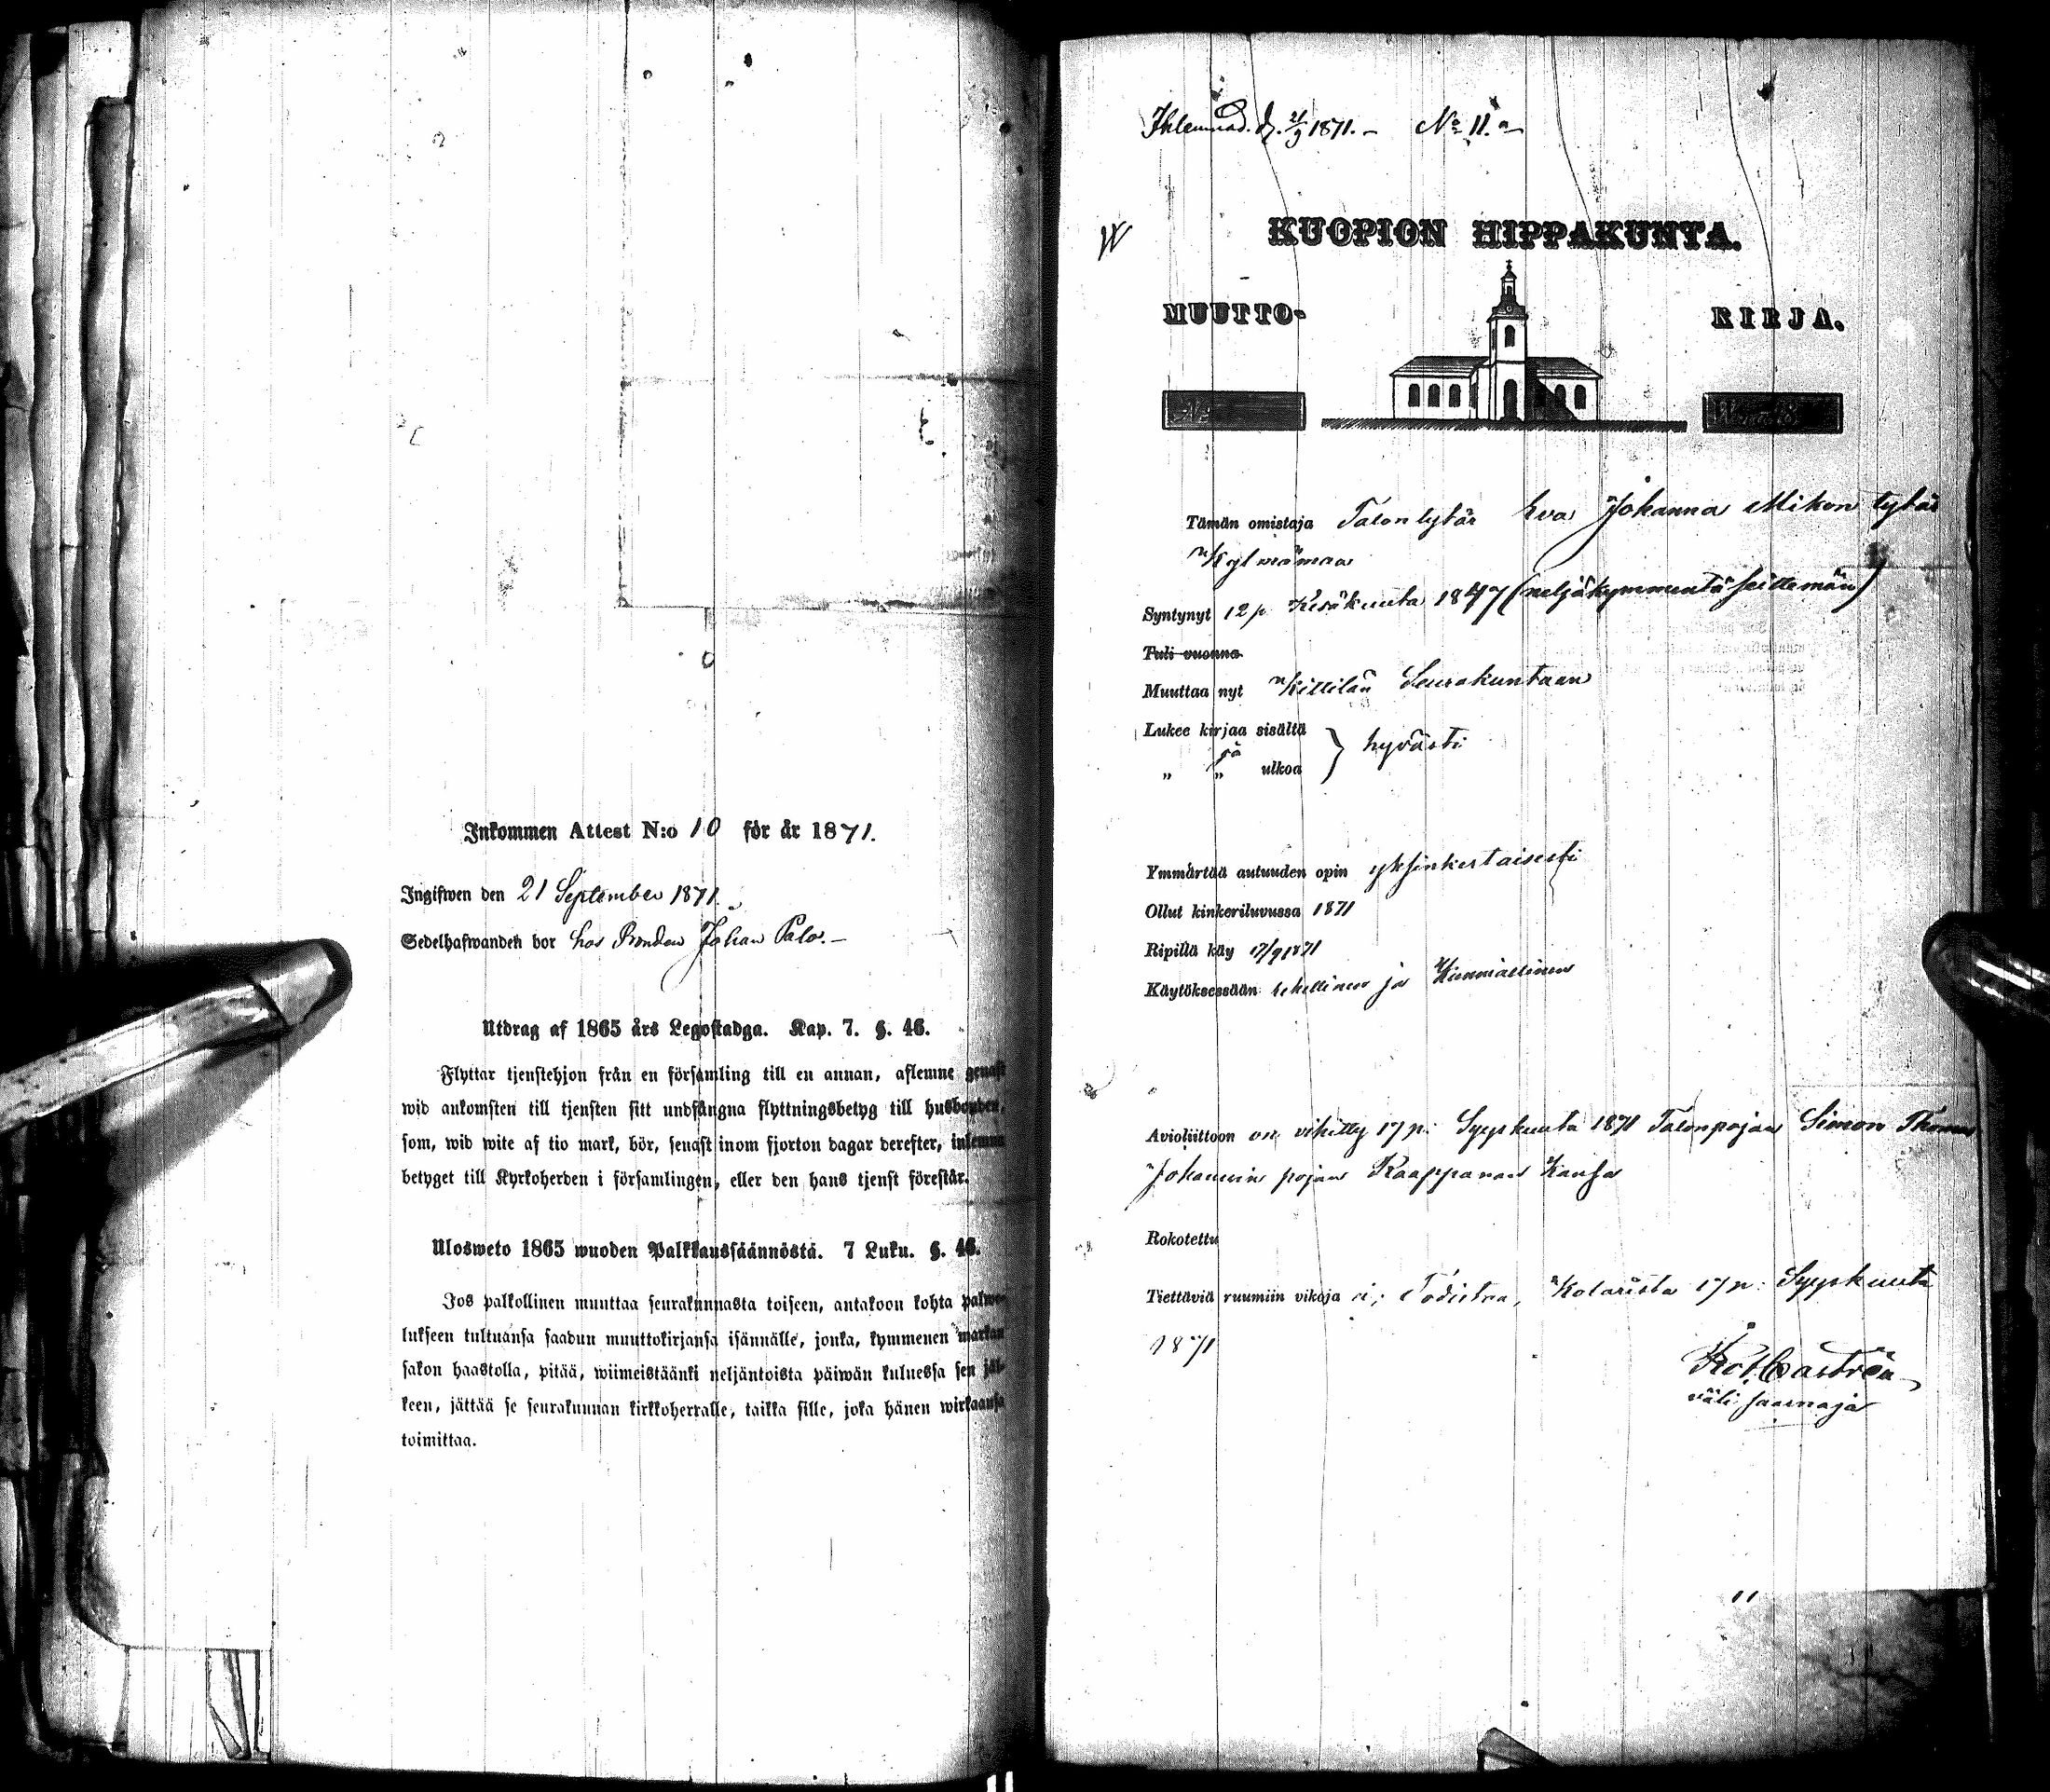 Inkommen Attest N:o 10 för år 1871.
Ingifwen den 21 September 1871.
Sedelhafwanden bor hos Bonden Johan Palo.–
Utdrag af 1865 års Legostadga. Kap. 7. §. 46.
Flyttar tjenstehjon från en församling till en annan, aflemne genast
wid ankomsten till tjensten sitt undfångna flyttningsbetyg till husbonden,
som, wid wite af tio mark, bör, senast inom fjorton dagar derefter, inlemna
betyget till Kyrkoherden i församlingen, eller den hans tjenst förestår.
Ulosweto 1865 wuoden Palkkaussäännöstä. 7 Luku. §. 46.
Jos palkollinen muuttaa seurakunnasta toiseen, antakoon kohta palwe-
lukseen tultuansa saadun muuttokirjansa isännälle, jonka, kymmenen markan
sakon haastolla, pitää, wiimeistäänki neljäntoista päiwän kuluessa sen jäl-
keen, jättää se seurakunnan kirkkoherralle, taikka sille, joka hänen wirkaansa
toimittaa.
d. 21/9 1871.– No 11.
KUOPION HIPPAKUNTA.
MUUTTO- KIRJA.
No
Wuonna 18
Tämän omistaja Talontytär Eva Johanna Mikon tytär
Kylmämaa
Syntynyt 12 p. Kesäkuuta 1847 (neljäkymmentä seittemän)
Tuli vuonna
Muuttaa nyt Kittilän Seurakuntaan
Lukee kirjaa sisältä
ja } hyvästi
„ „ ulkoa
Ymmärtää autuuden opin yksinkertaisesti
Ollut kinkeriluvussa 1871
Ripillä käy 17/9 1871
Käytöksessään siveellinen ja Kunniallinen
Avioliittoon on vihitty 17 p. Syyskuuta 1871 Talonpojan Simon Thomas
Johannin pojan Kaappanan Kansa
Rokotettu
Tiettäviä ruumiin vikoja ei; Todistaa, Kolarista 17 p. Syyskuuta
1871
Castrén
väli saarnaja
11